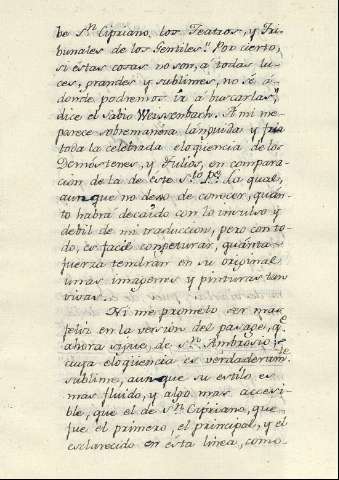 de Sⁿ Cipriano, los Teatros, y Tri-
bunales de los Gentiles!! Por cierto,
si éstas cosas no son, á todas lu-
ces, grandes y sublimes, no sé á
donde podremos ir á buscarlas,"
dice el Sabio Weissenbach. A mi me
parece sobremanera lanquida y fria
toda la celebrada eloqüencia de los
Demóstenes, y Tulios, en compara-
ción de la de este Sᵗᵒ Pᵉ La qual,
aunque no dexo de conocer, quán-
to habrá decaído con lo insulso y
debil de mi traduccion, pero con to-
do, es facil conjeturar, quánta
fuerza tendrán en su original
unas imagenes y pinturas tan
vivas.
Ni me prometo ser mas
feliz en la versión del pasage, qᵉ
ahora sigue, de Sⁿ Ambrosio;
cuya eloqüencia es verdaderamᵗᵉ
sublime, aunque su estilo es
mas fluido, y algo mas accesi-
ble, que el de Sⁿ Cipriano, que
fue el primero, el principal, y el
esclarecido en ésta linea, como